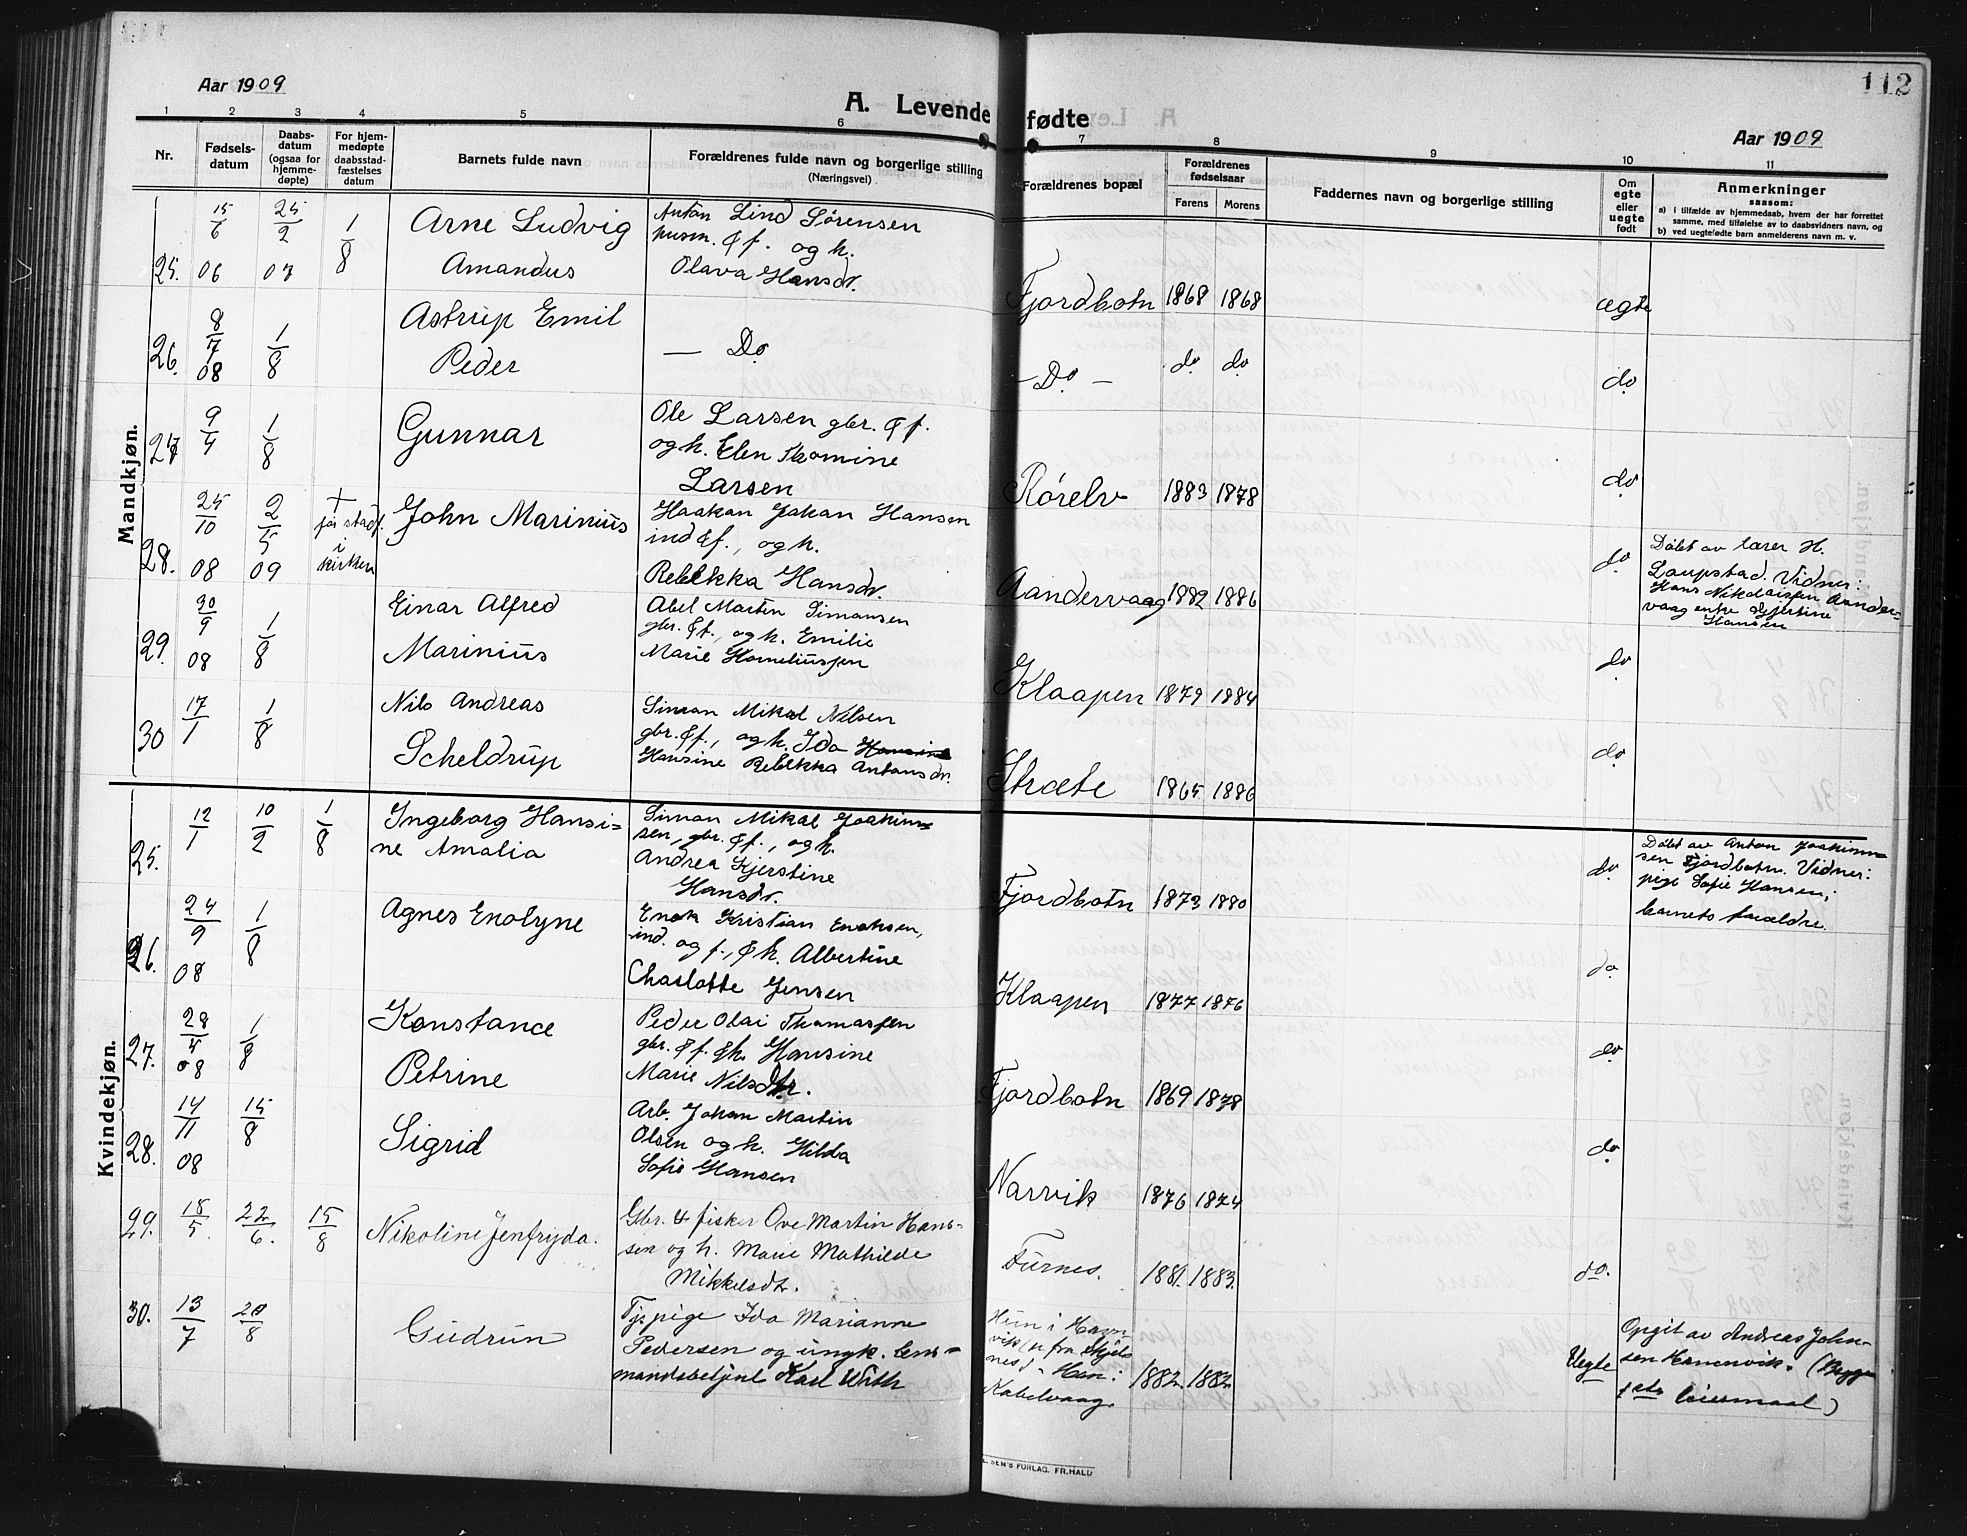 112
Aar 1909
A. Levende fødte
Aar 1909
1 2 3 4 5 6 7 8 9 10 11
Nr.
Fødsels-
datum
Daabs-
datum
(ogsaa for
hjemme-
døpte)
For hjem-
medøpte
daabsstad-
fæstelses
datum
Barnets fulde navn
Forældrenes fulde navn og borgerlige stilling
(Næringsvei)
Forældrenes bopæl
Forældrenes
fødselsaar
Farens Morens
Faddernes navn og borgerlige stilling
Om
egte
eller
uegte
født
Anmerkninger
saasom:
a) i tilfælde av hjemmedaab, hvem der har forrettet
samme, med tilføielse av to daabsvidners navn, og
b) ved uegtefødte barn anmelderens navn m. v.
Mandkjøn.
25. 15/6 06 25/2 07 1/8
Arne Ludvig
Amandus
Anton Lind Sørensen
husm. & f. og h.
Olava Hansdr.
Fjordbotn 1868 1868 ægte
26. 8/7 08 1/8
Astrup Emil
Peder
— Do
— Do — do do do
27 9/4 1/8
Gunnar
Ole Larsen gbr. & f.
og h. Elen Thomine
Larsen
Rørelv 1883 1878 do
28. 25/10 08 2/5 09
† for stadf.
i
kirken
John Marinius
Haakon Johan Hansen
ind & f., og h.
Rebekka Hansdr.
Aandervaag 1882 1886 do
Døbt av lærer H.
Laupstad. Vidner:
Hans Nikolaisen Aander-
vaag enke Gjertine
Hansen
29. 30/9 08 1/8
Einar Alfred
Marinius
Abel Martin Simonsen
gbr. & f., og h. Emilie
Marie Korneliussen
Klaapen 1879 1884 do
30 17/1 1/8
Nils Andreas
Scheldrup
Simon Mikal Nilsen
gbr. & f., og h. Ida Hansine
Hansine Rebekka Antonsdr.
Stræte 1865 1886 do
Kvindekjøn.
25. 12/1 10/2 1/8
Ingeborg Hansi-
ne Amalia
Simon Mikal Joakim-
sen, gbr. & f., og h.
Andrea Kjerstine
Hansdr.
Fjordbotn 1873 1880 do
Døbt av Anton Joakim-
sen Fjordbotn. Vidner:
pige Sofie Hansen;
barnets forældre.
26. 24/9 08 1/8
Agnes Enolyne
Enok Kristian Enoksen,
ind. og f., & h. Albertine
Charlotte Jensen
Klaapen 1877 1876 do
27. 28/4 08 1/8
Konstance
Petrine
Peder Olai Thomassen
gbr. & f. & h. Hansine
Marie Nilsdtr.
Fjordbotn 1869 1878 do
28. 14/11 08 15/8
Sigrid
Arb. Johan Martin
Olsen og h. Hilda
Sofie Hansen
Narvik 1876 1874 do
29. 18/5 22/6. 15/8
Nikoline Jenfryda.
Gbr. & fisker Ove Martin Han-
sen og h. Marie Mathilde
Mikkelsdtr.
Furnes. 1881. 1883. do.
30. 13/7 28/8
Gudrun
Tj.pige Ida Marianne
Pedersen og ungk. lens-
mandsbetjent Karl Wirth
Hun i Havn-
vik
nes Han:
Kabelvaag. 1882 1882 Uegte
Opgit av Andreas John-
sen Havnvik. (Begges
1ste leiermaal)
SEN'S FORLAG. FR.HALD